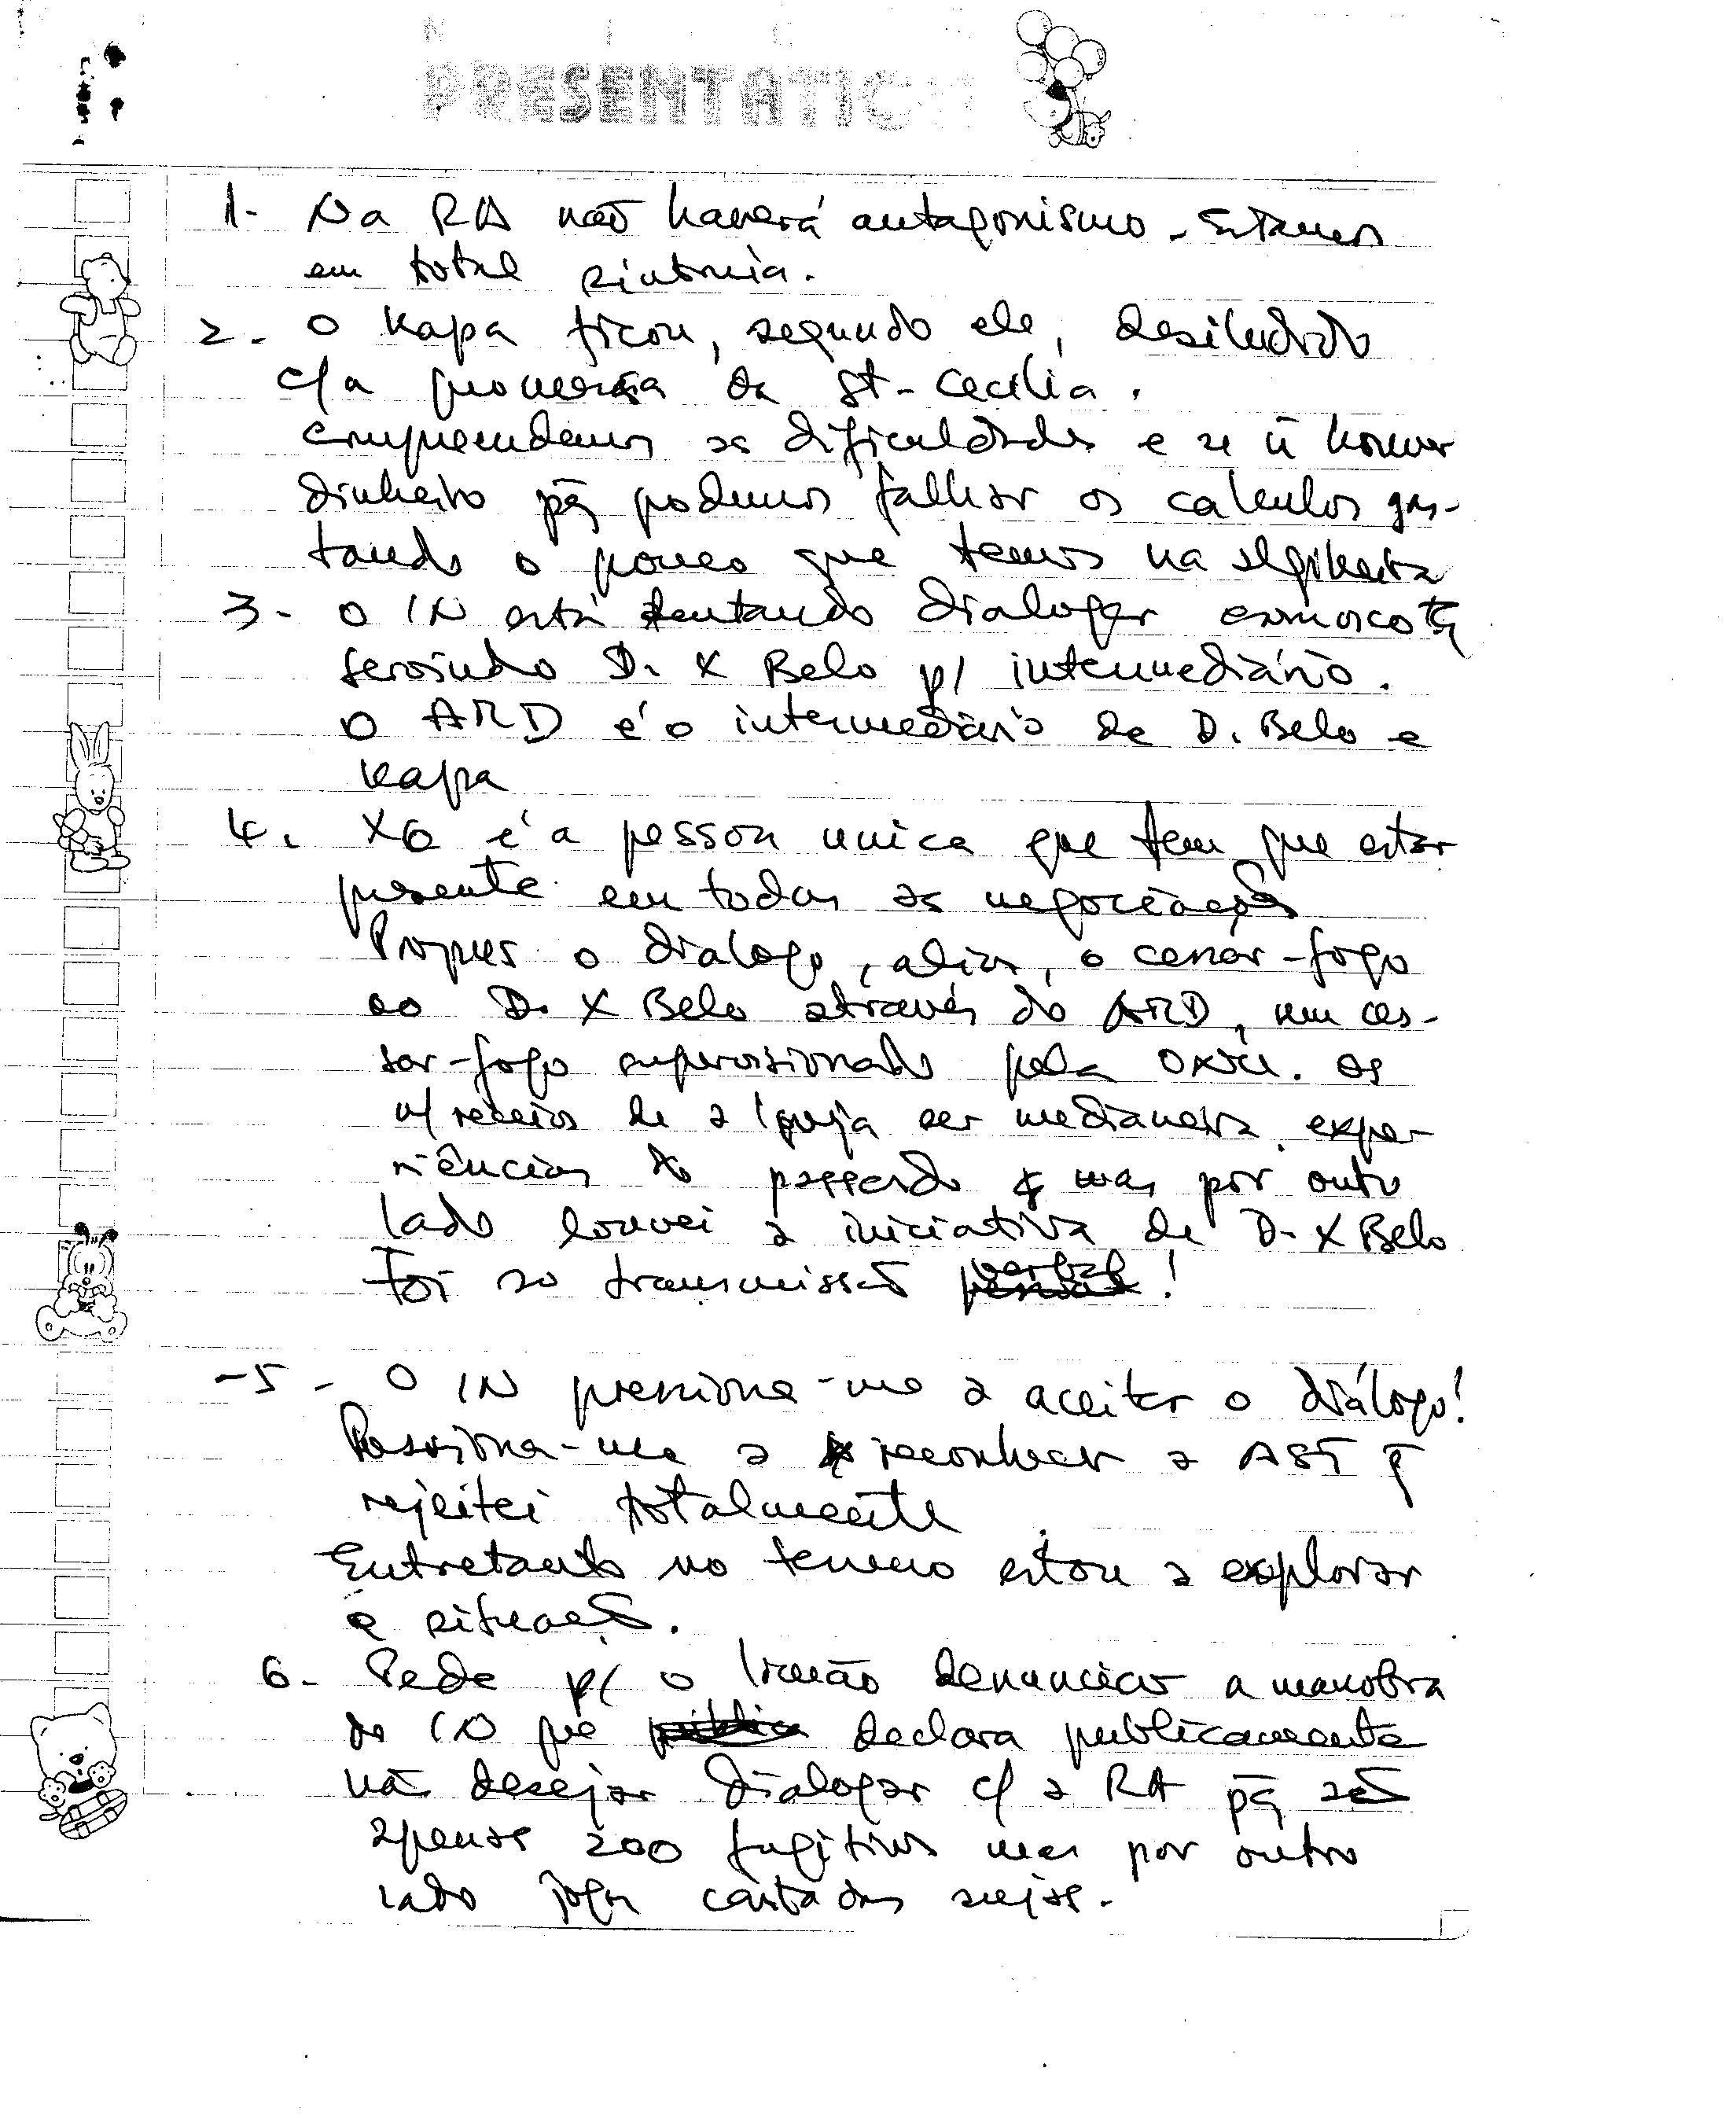 NICE
PRESENTATION
1- Na RA não haverá antagonismo - Estamos
em total sintonia.
2- O Kapa ficou, segundo ele, desiludido
c/a promessa da St-Cecília.
Compreendemos as dificuldades e se ñ houver
dinheiro pq podemos falhar os calculos gas-
tando o pouco que temos na algibeira
3- O IN está tentando dialogar
servindo D. X Belo p/ intermediário.
O ARD é o intermediário de D. Belo e
Kapa
4. XG é a pessoa unica que tem que estar
presente em todas as negociações
Propus o dialogo, aliás, o cessar-fogo
ao D. X Belo através do ARD, um ces-
sar-fogo supervisionado pela ONU. Os
n/ receios de a Igreja ser medianeira. expe-
riências do passado mas por outro
lado louvei a iniciativa de D. X Belo
Foi só transmissão verbal!
-5- O IN pressiona-me a aceitar o diálogo!
Pressiona-me a reconhecer a AST q
rejeitei totalmente.
Entretanto no terreno estou a explorar
a situação.
6- Pede p/ o Irmão denunciar a manobra
do IN que declara publicamente
não desejar dialogar c/ a RA pq são
apenas 200 fugitivos mas por outro
lado joga cartadas sujas.